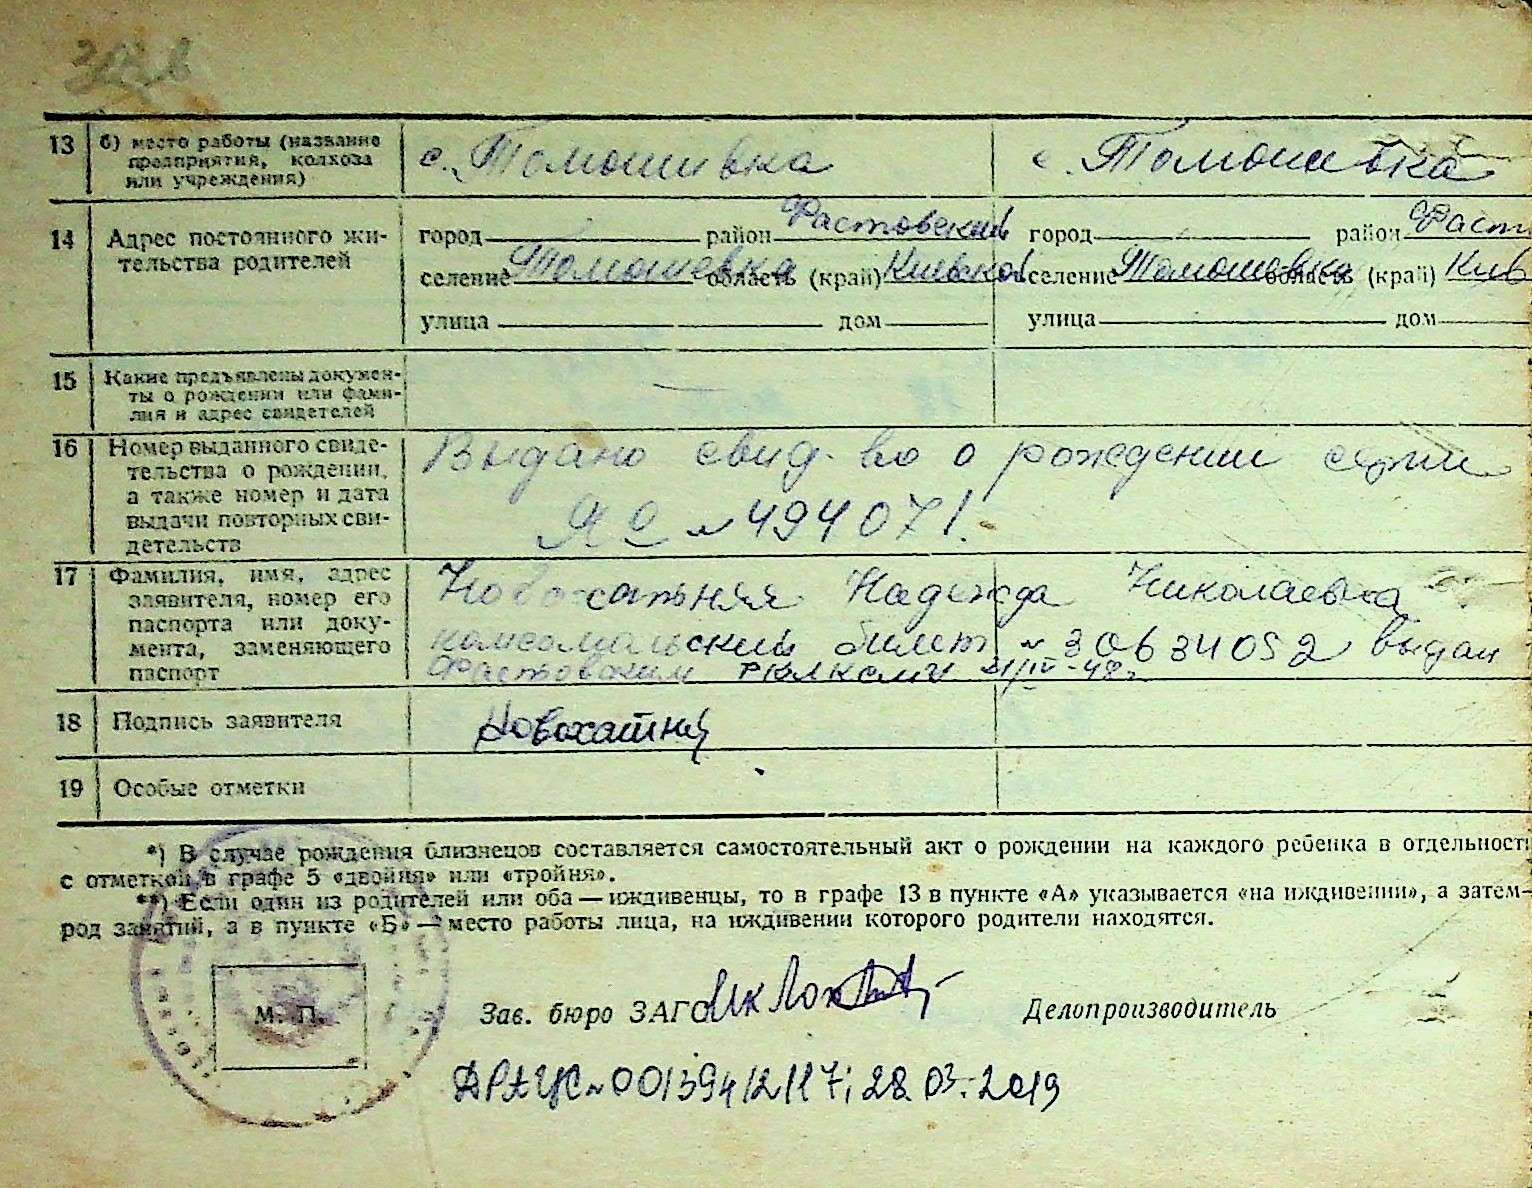 13 б) место работы (название предприятия, колхоза или учреждения)
с. Томашивка
с. Томашивка
14 Адрес постоянного жительства родителей
город район Фастовский
селение Томашевка область (край) Киевская
улица дом
город район Фаст
селение Томашевка область (край) Киев
улица дом
15 Какие предъявлены документы о рождении или фамилия и адрес свидетелей
16 Номер выданного свидетельства о рождении, а также номер и дата выдачи повторных свидетельств
Выдано свид-во о рождении серии
ЯО № 494071.
17 Фамилия, имя, адрес заявителя, номер его паспорта или документа, заменяющего паспорт
Новохатняя Надежда Николаевна
комсомольский билет № 30634052 выдан
Фастовским РКЛКСМУ
18 Подпись заявителя
Новохатня
19 Особые отметки
*) В случае рождения близнецов составляется самостоятельный акт о рождении на каждого ребенка в отдельности
с отметкой в графе 5 «двойня» или «тройня».
**) Если один из родителей или оба — иждивенцы, то в графе 13 в пункте «А» указывается «на иждивении», а затем—
род занятий, а в пункте «Б» — место работы лица, на иждивении которого родители находятся.
М. П.
Зав. бюро ЗАГС
Делопроизводитель
ДРАЦС № 00139412117; 28.03.2019